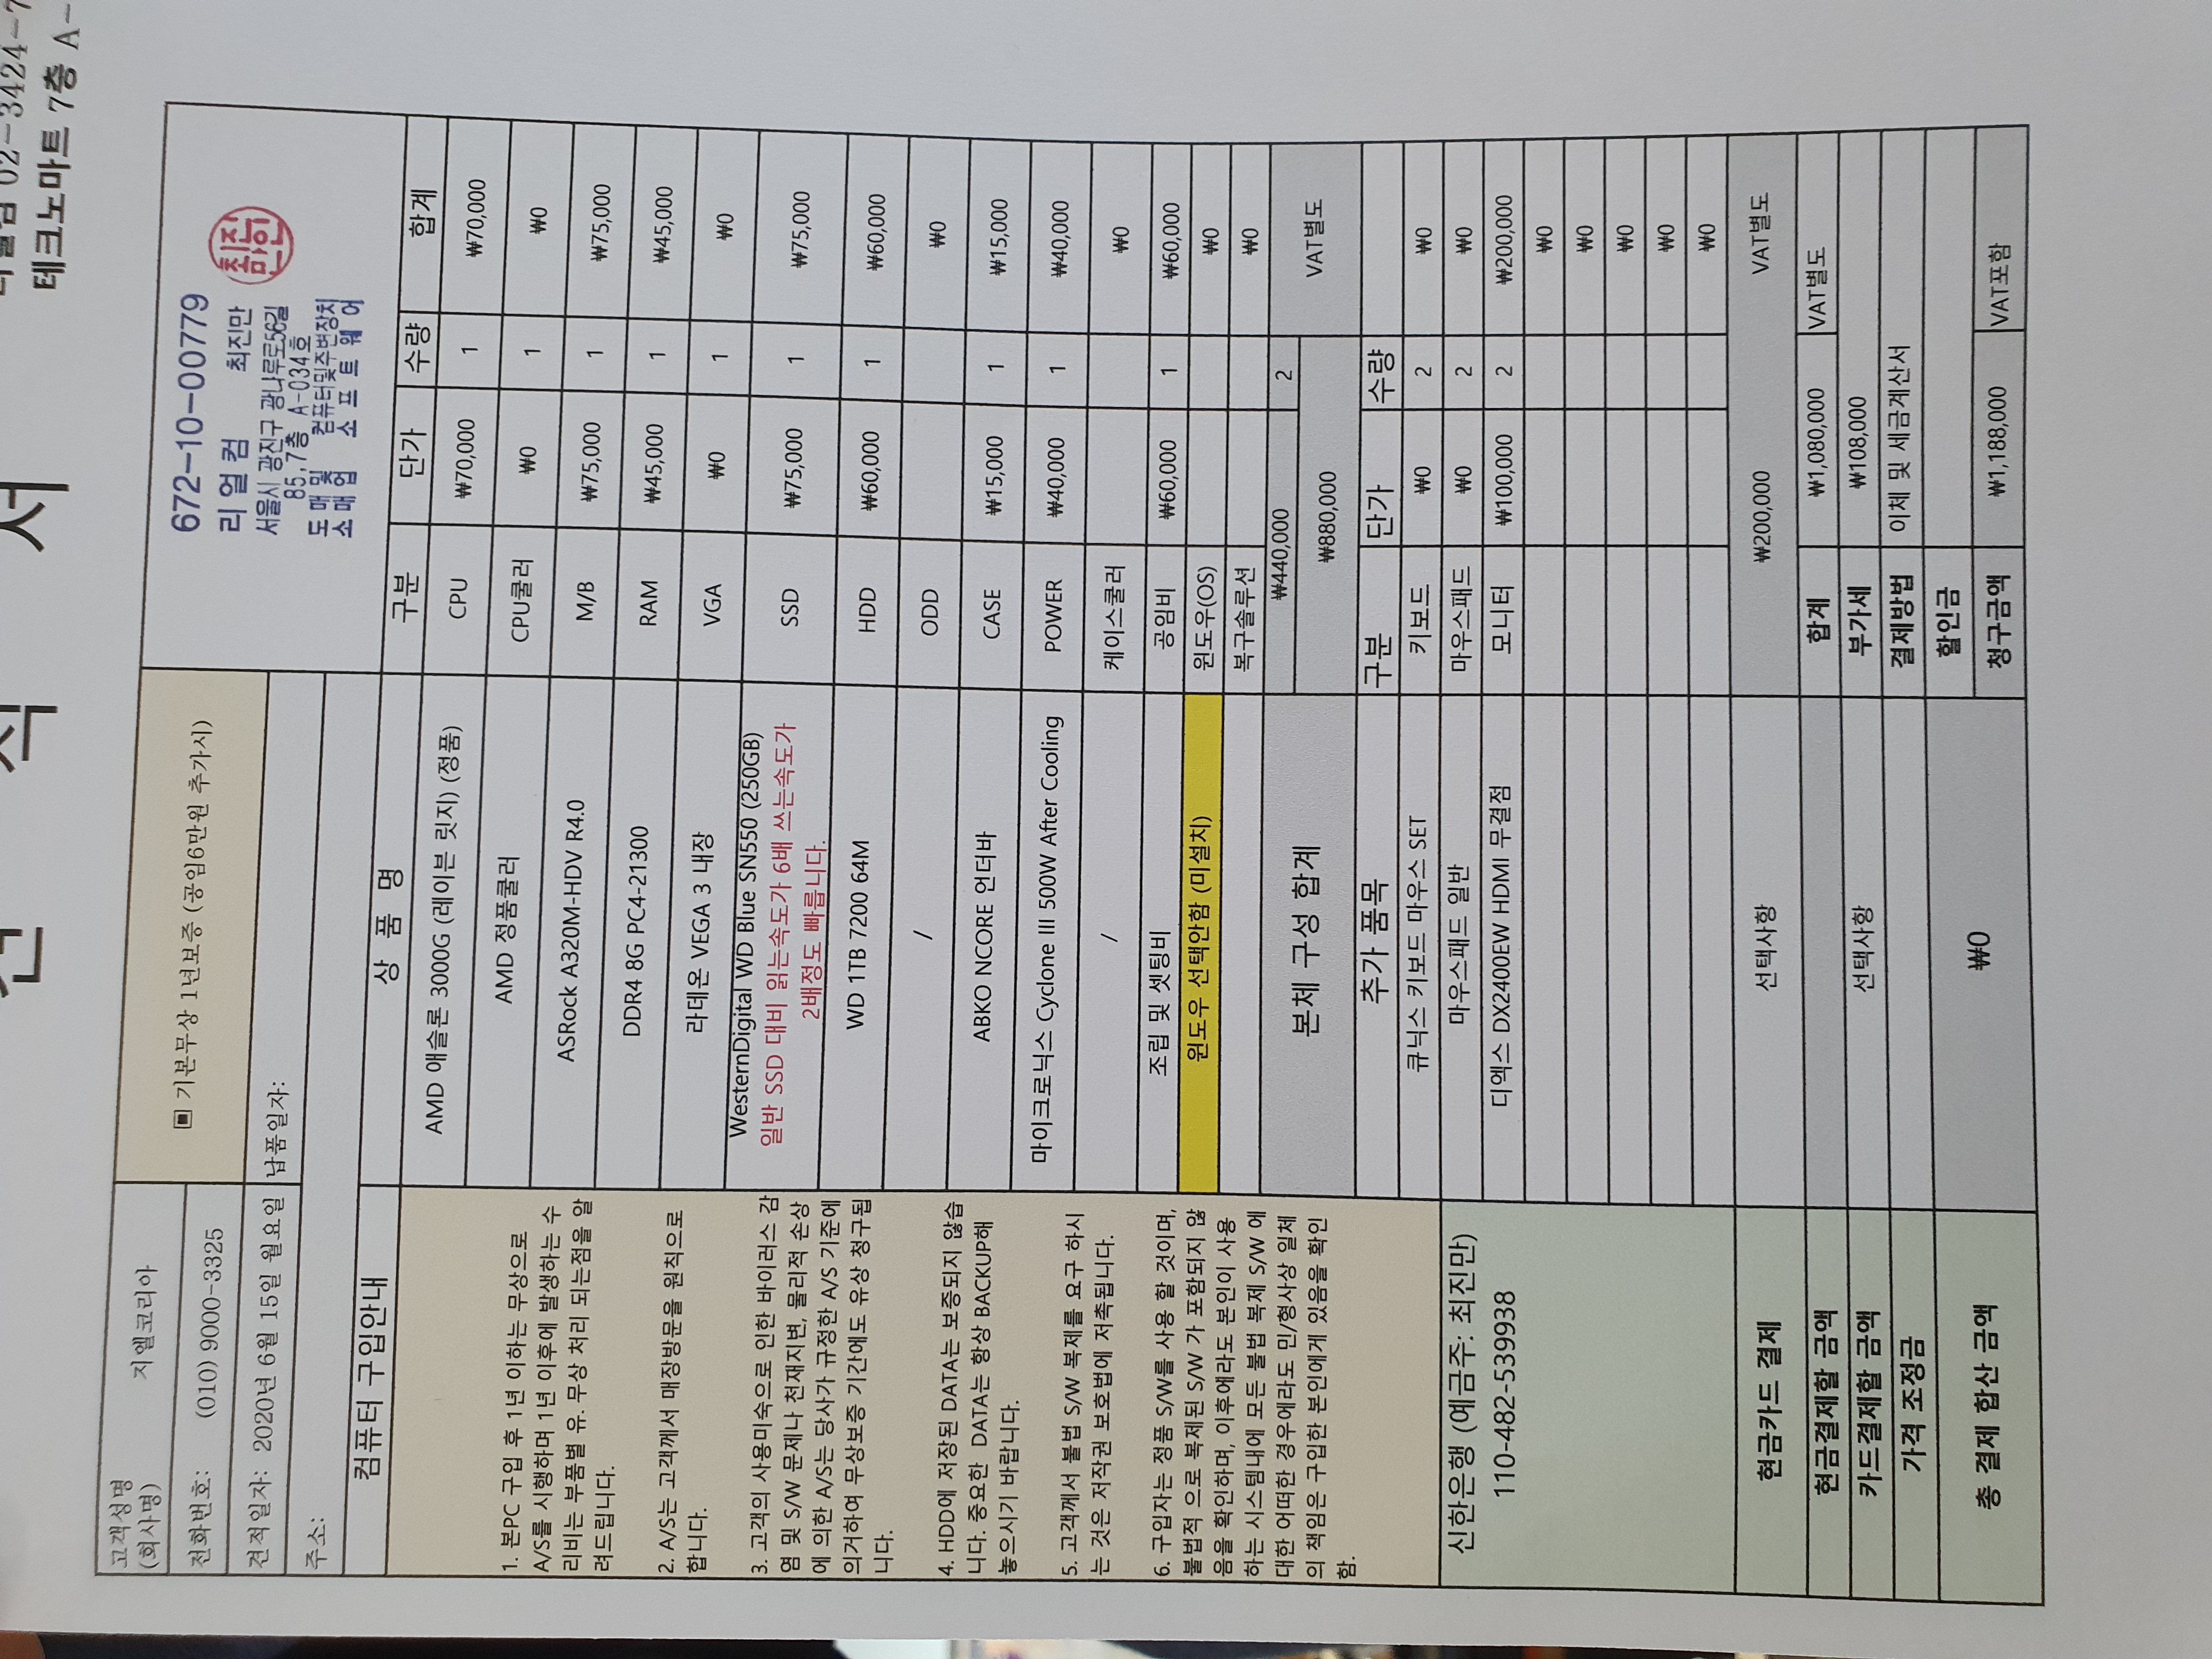 견 적 서
02-3424-7
테크노마트 7층 A-
고객성명
(회사명)
지엘코리아
▣ 기본무상 1년보증 (공임6만원 추가시)
전화번호: (010) 9000-3325
견적일자: 2020년 6월 15일 월요일 납품일자:
주소:
672-10-00779
리얼컴 최진만
서울시 광진구 광나루로56길
85,7층 A-034호
도매및 컴퓨터및주변장치
소매업 소프트웨어
컴퓨터 구입안내
1. 본PC 구입 후 1년 이하는 무상으로
A/S를 시행하며 1년 이후에 발생하는 수
리비는 부품별 유. 무상 처리 되는점을 알
려드립니다.
2. A/S는 고객께서 매장방문을 원칙으로
합니다.
3. 고객의 사용미숙으로 인한 바이러스 감
염 및 S/W 문제나 천재지변, 물리적 손상
에 의한 A/S는 당사가 규정한 A/S 기준에
의거하여 무상보증 기간에도 유상 청구됩
니다.
4. HDD에 저장된 DATA는 보증되지 않습
니다. 중요한 DATA는 항상 BACKUP해
놓으시기 바랍니다.
5. 고객께서 불법 S/W 복제를 요구 하시
는 것은 저작권 보호법에 저촉됩니다.
6. 구입자는 정품 S/W를 사용 할 것이며,
불법적 으로 복제된 S/W 가 포함되지 않
음을 확인하며, 이후에라도 본인이 사용
하는 시스템내에 모든 불법 복제 S/W 에
대한 어떠한 경우에라도 민/형사상 일체
의 책임은 구입한 본인에게 있음을 확인
함.
상 품 명 구분 단가 수량 합계
AMD 애슬론 3000G (레이븐 릿지) (정품) CPU ₩70,000 1 ₩70,000
AMD 정품쿨러 CPU쿨러 ₩0 1 ₩0
ASRock A320M-HDV R4.0 M/B ₩75,000 1 ₩75,000
DDR4 8G PC4-21300 RAM ₩45,000 1 ₩45,000
라데온 VEGA 3 내장 VGA ₩0 1 ₩0
WesternDigital WD Blue SN550 (250GB)
일반 SSD 대비 읽는속도가 6배 쓰는속도가
2배정도 빠릅니다.
SSD ₩75,000 1 ₩75,000
WD 1TB 7200 64M HDD ₩60,000 1 ₩60,000
/ ODD ₩0
ABKO NCORE 언더바 CASE ₩15,000 1 ₩15,000
마이크로닉스 Cyclone III 500W After Cooling POWER ₩40,000 1 ₩40,000
/ 케이스쿨러 ₩0
조립 및 셋팅비 공임비 ₩60,000 1 ₩60,000
윈도우 선택안함 (미설치) 윈도우(OS) ₩0
복구솔루션 ₩0
본체 구성 합계 ₩440,000 2
₩880,000 VAT별도
추가 품목 구분 단가 수량
큐닉스 키보드 마우스 SET 키보드 ₩0 2 ₩0
마우스패드 일반 마우스패드 ₩0 2 ₩0
디엑스 DX2400EW HDMI 무결점 모니터 ₩100,000 2 ₩200,000
₩0
₩0
₩0
₩0
₩0
신한은행 (예금주: 최진만)
110-482-539938
현금카드 결제 선택사항 ₩200,000 VAT별도
현금결제할 금액 합계 ₩1,080,000 VAT별도
카드결제할 금액 선택사항 부가세 ₩108,000
가격 조정금 결제방법 이체 및 세금계산서
총 결제 합산 금액 ₩0
할인금
청구금액 ₩1,188,000 VAT포함